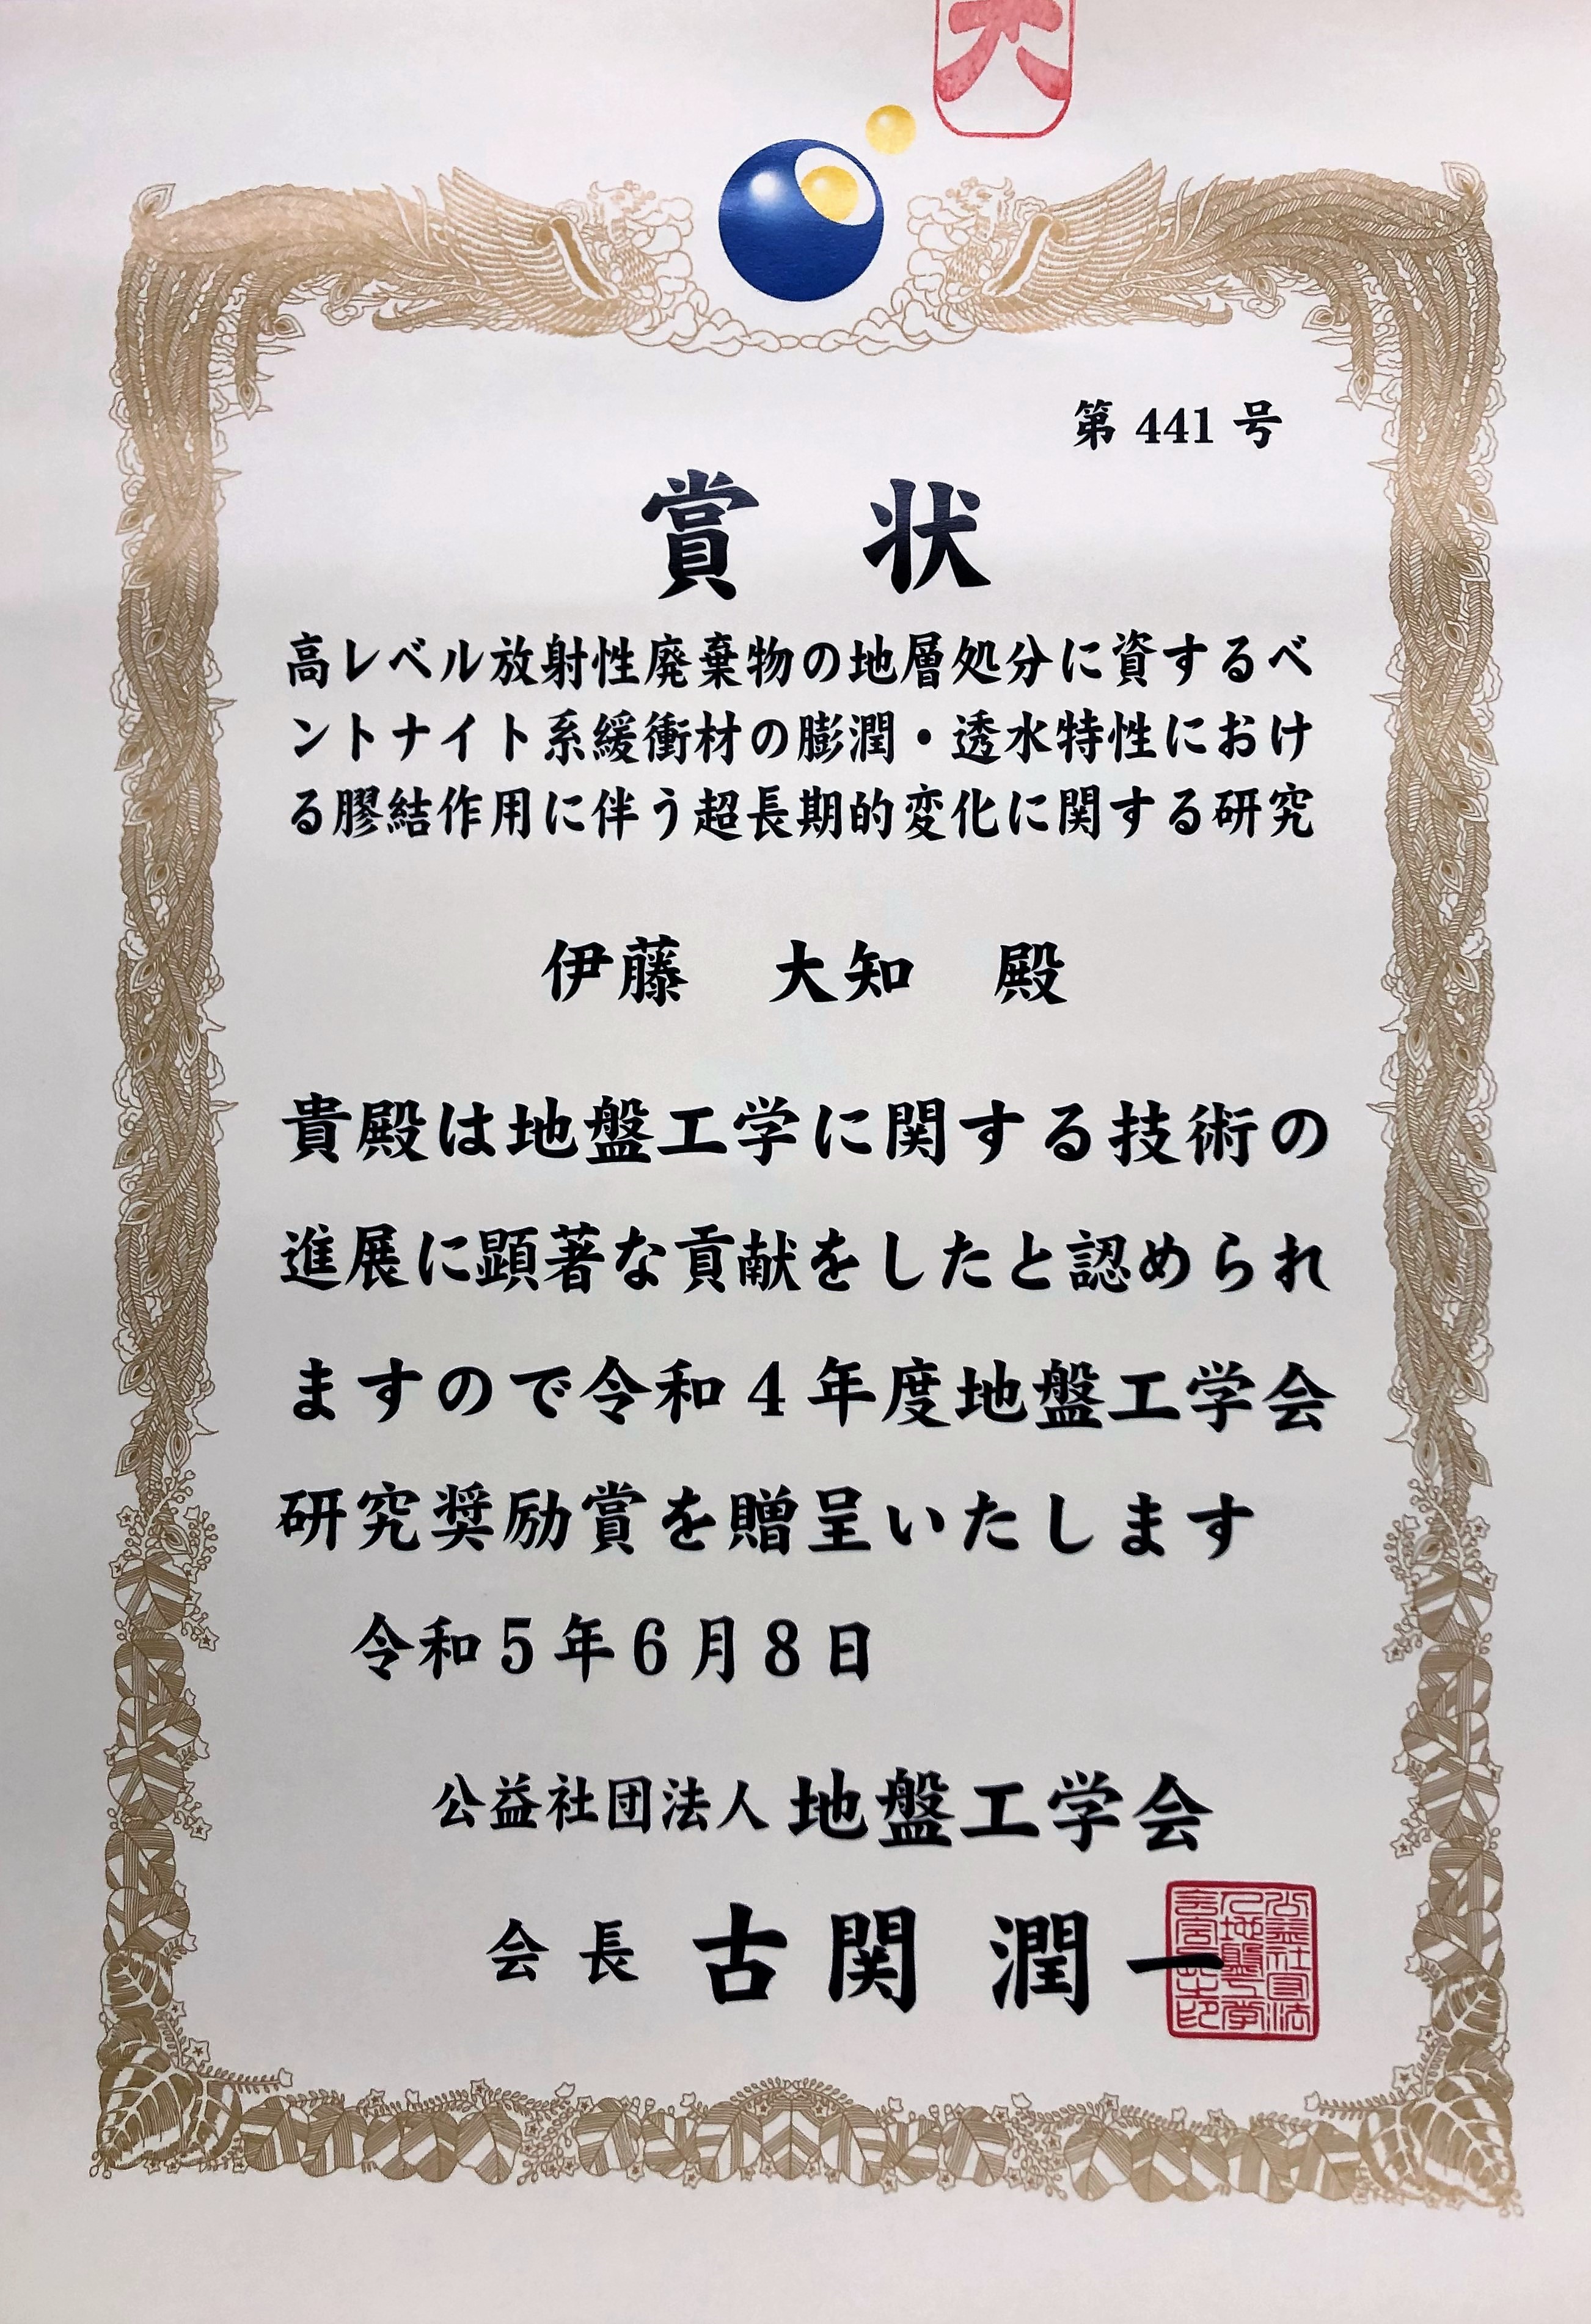 第 441 号
賞 状
高レベル放射性廃棄物の地層処分に資するベ
ントナイト系緩衝材の膨潤・透水特性におけ
る膠結作用に伴う超長期的変化に関する研究
伊藤 大知 殿
貴殿は地盤工学に関する技術の
進展に顕著な貢献をしたと認められ
ますので令和4年度地盤工学会
研究奨励賞を贈呈いたします
令和5年6月8日
公益社団法人地盤工学会
会長 古関 潤一